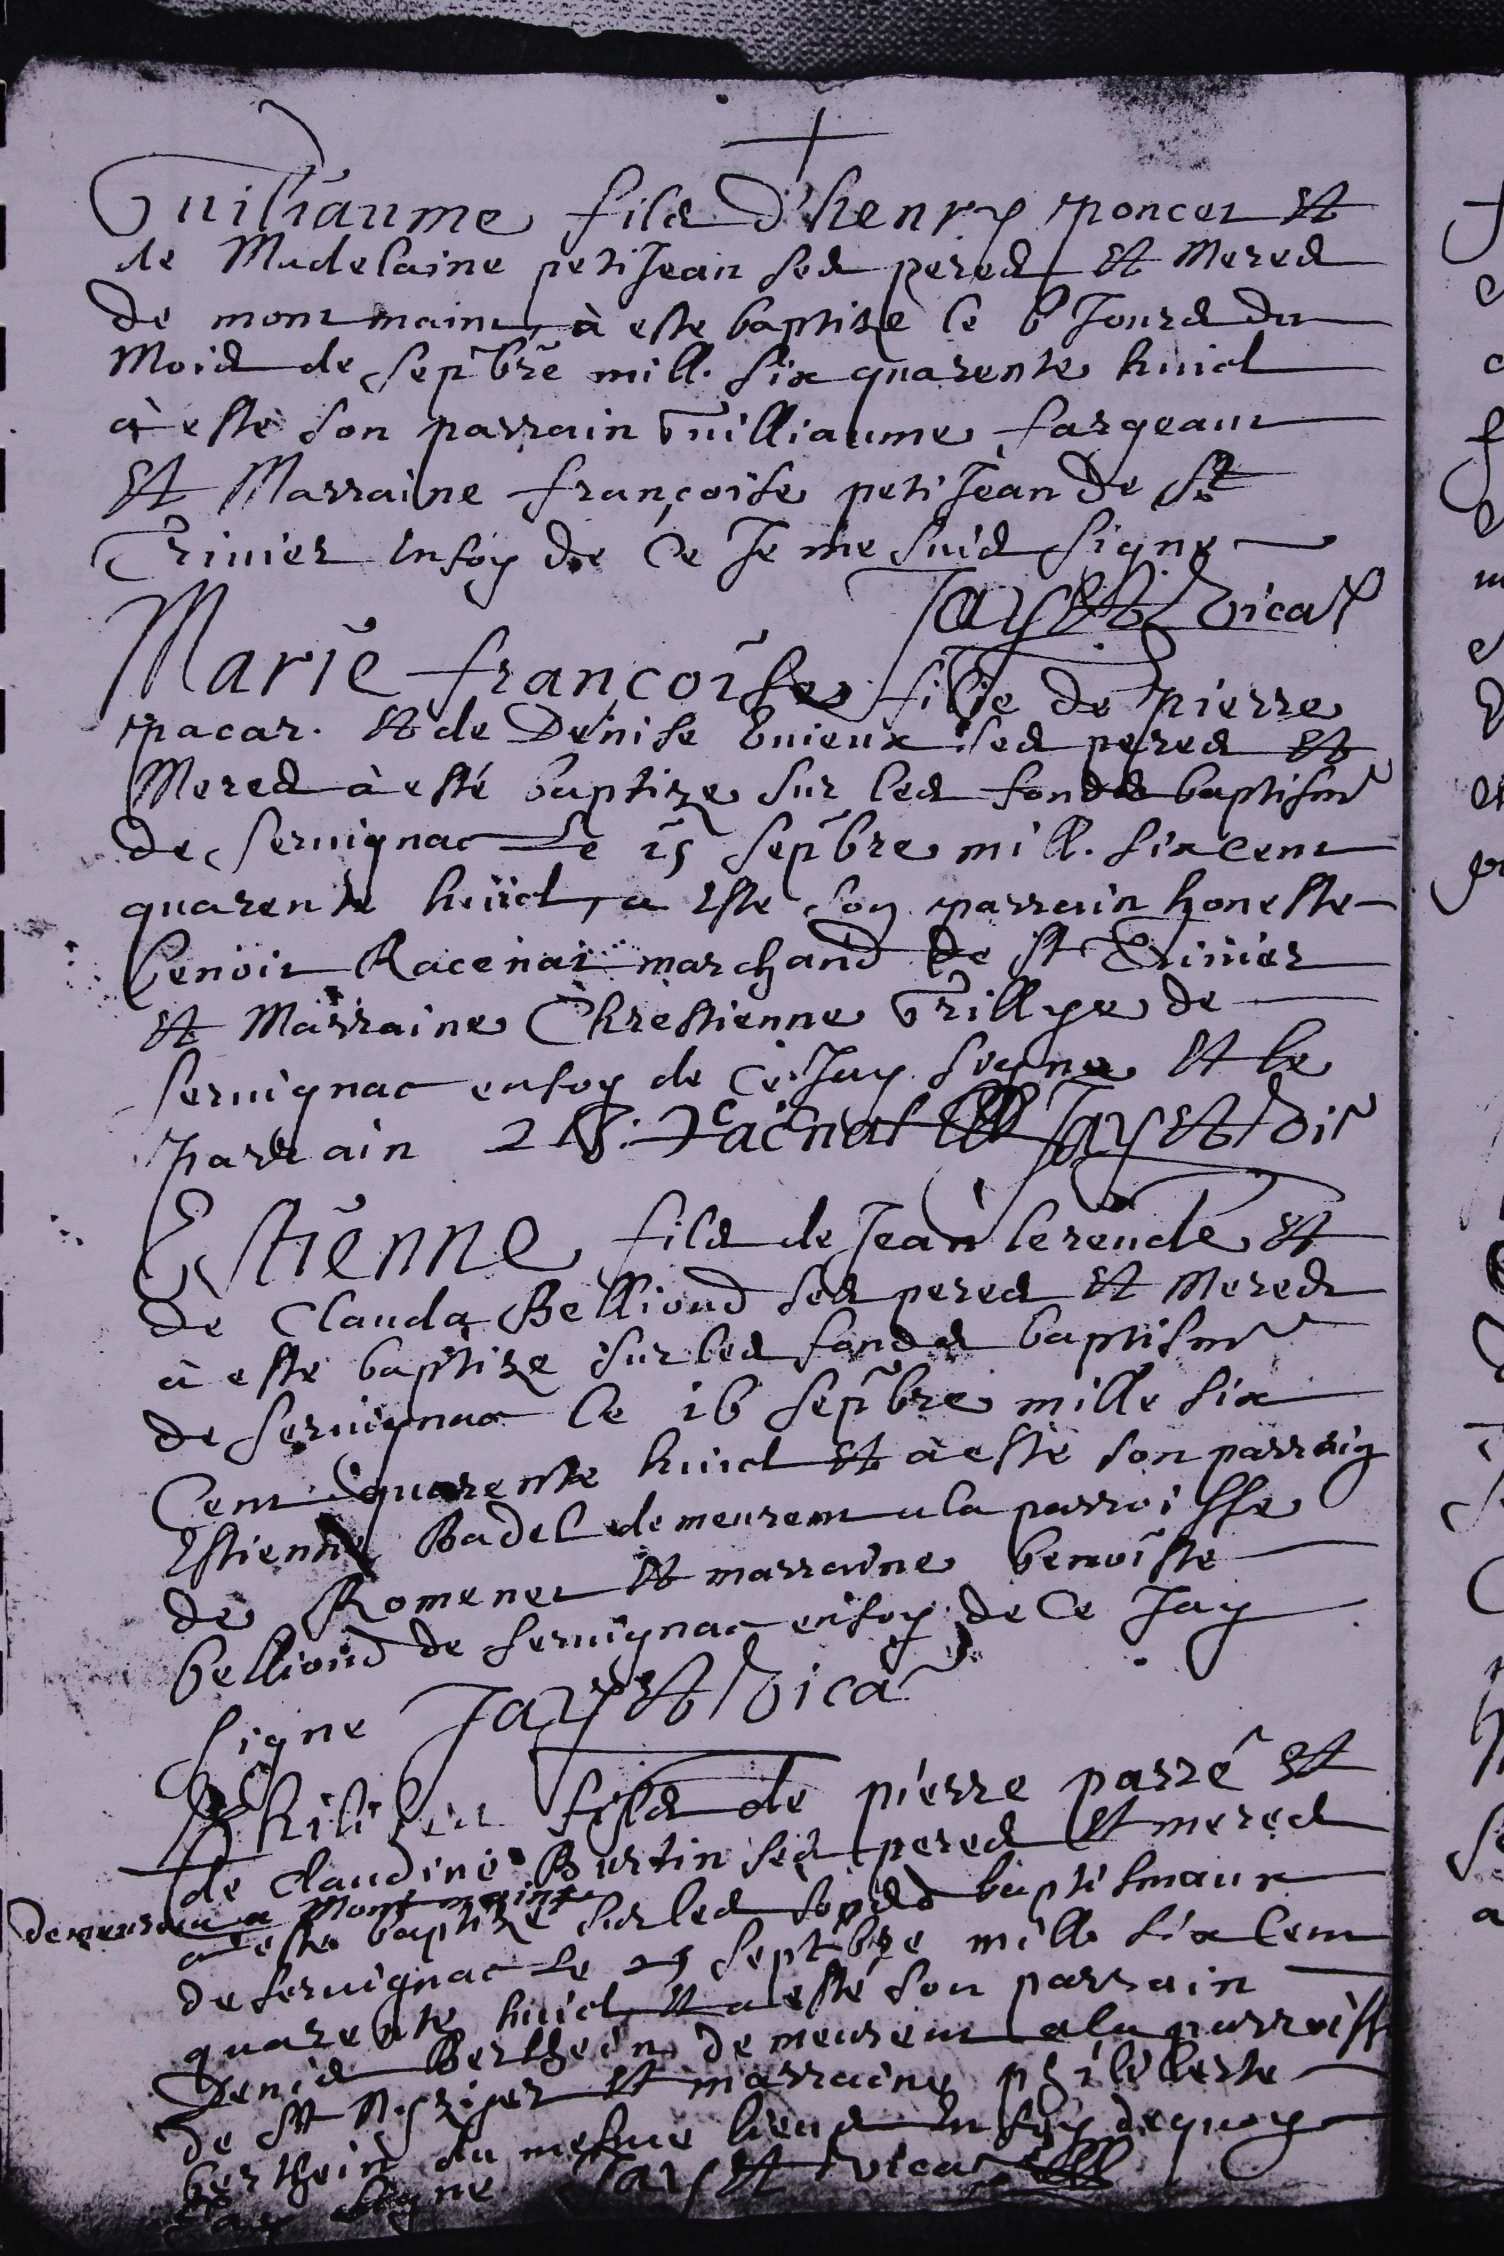 Guilliaume fils d'henry poncet et
de Madelaine petiJean ses peres et Meres
de montmaint, à esté baptize le 6e Jours du
Mois de sepbre mill. six quarente huict
à esté son parrain Guilliaume fargeaut
et Marraine françoise petiJean de st
Trivier en foy de Ce Je me suis signe
Jayet vicair
Marie françoise fille de Pierre
pacar. et de Denise Envieux ses peres et
Meres à esté baptize sur les fonds baptism
de servignac Le 15 sepbre mill. six Cent
quarente huict, a este son parrain honeste
benoit Racenat marchand de st Trivier
et Marraine Chrestienne Grillye de
servignac en foy de Ce Jay signe et le
parrain B. Racinat Jayet vic
Estienne fils de Jean
de Clauda Belliond ses peres et Meres
à esté baptize sur les fonds baptism
de servignac le 16 sepbre mille six
Cent quarente huict et à esté son parraig
Estienne Badel demeurent a la parroisse
de Romenet et marraine benoiste
belliond de servignac en foy de Ce Jay
signe Jayet vica
Philibert fils de pierre parré et
de Claudine Burtin ses peres et meres
demeurent a Montmaint
a esté baptizé sur les fonds baptismaux
de servignac le 25 septbre mille six Cent
quarente huict, et a esté son parrain
Denis Berthein demeurent a la parroisse
de st et marraine philiberte
berthein du mesme lieu en foy de quoy
Jay signe Jayet vica